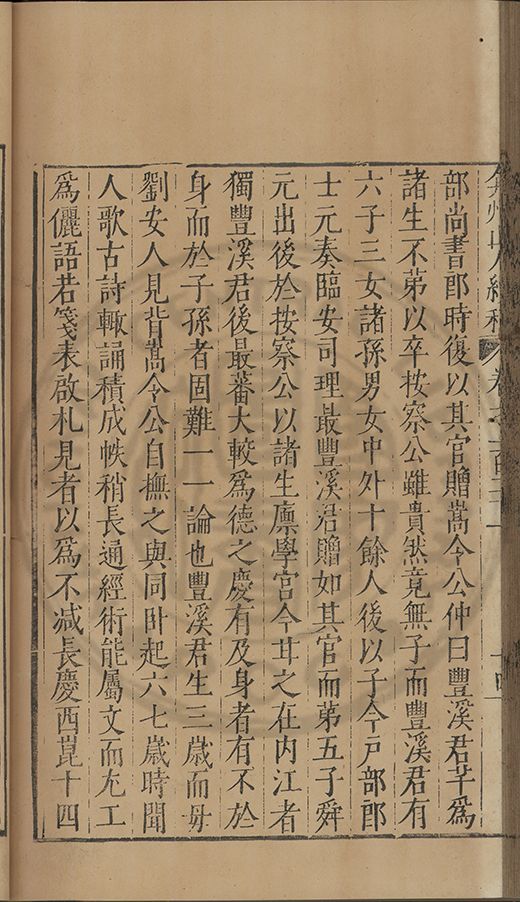 弇州山人續稿 卷之一百三十一 十四
部尚書郎時復以其官贈嵩令公仲曰豐溪君芊爲
諸生不第以卒按察公雖貴然竟無子而豐溪君有
六子三女諸孫男女中外十餘人後以子今戶部郎
士元奏臨安司理最豐溪君贈如其官而第五子舜
元出後於按察公以諸生廩學宮今芊之在内江者
獨豐溪君後最蕃大較爲德之慶有及身者有不於
身而於子孫者固難一一論也豐溪君生三歲而毋
劉安人見背嵩令公自撫之與同卧起六七歲時聞
人歌古詩輙誦積成帙稍長通經術能屬文而尤工
爲儷語若箋表啟札見者以爲不减長慶西崑十四